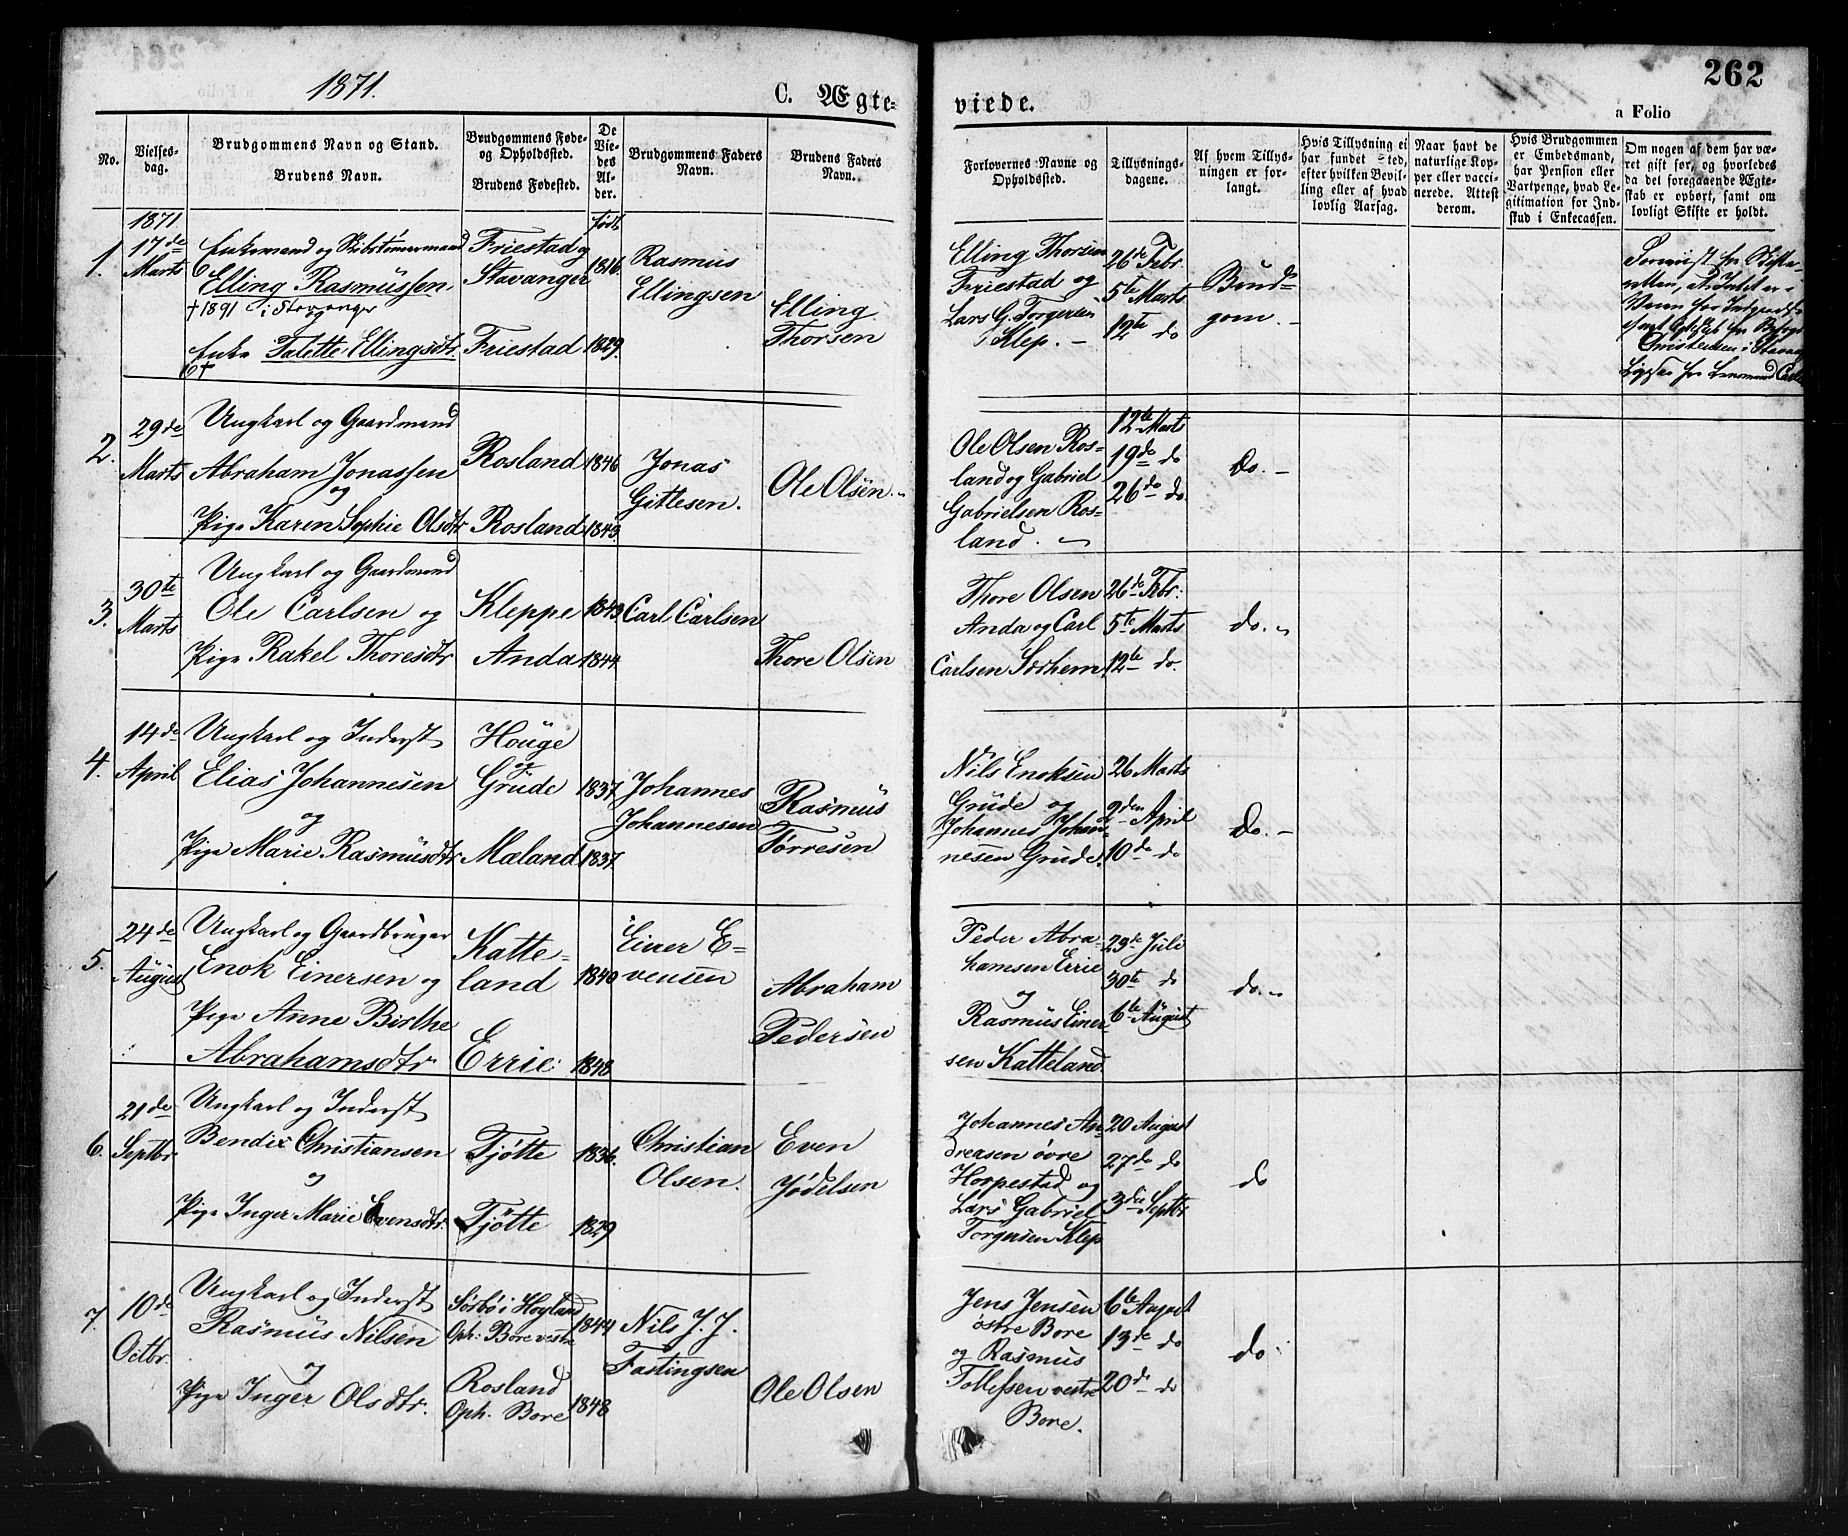 1871.
C. Ægte-
viede.
262
a Folio
No.
Vielses-
dag.
Brudgommens Navn og Stand.
Brudens Navn.
Brudgommens Føde-
og Opholdssted.
Brudens Fødested.
De
Vie-
des
Al-
der.
Brudgommens Faders
Navn.
Brudens Faders
Navn.
Forlovernes Navne og
Opholdssted.
Tillysnings-
dagene.
Af hvem Tillys-
ningen er for-
langt.
Hvis Tillysning ei
har fundet Sted,
efter hvilken Bevil-
ling eller af hvad
lovlig Aarsag.
Naar havt de
naturlige Kop-
per eller vacci-
nerede. Attest
derom.
Hvis Brudgommen
er Embedsmand,
har Pension eller
Vartpenge, hvad Le-
gitimation for Ind-
skud i Enkecassen.
Om nogen af dem har væ-
ret gift før, og hvorledes
da det foregaaende Ægte-
skab er ophørt, samt om
lovligt Skifte er holdt.
1.
1871
17de
Marts
Enkemand og Skibstømmermand
Elling Rasmussen,
†1891 i Stavanger
og
Enke Talette Ellingsdtr
Friestad og
Stavanger
Friestad
født
1816.
1829.
Rasmus
Ellingsen
Elling
Thorsen
Elling Thorsen
Friestad og
Lars G. Torgersen
Klep. –
26de Febr.
5te Marts
12te do
Brud-
gom. –
2.
29de
Marts
Ungkarl og Gaardmand
Abraham Jonassen
og
Pige Karen Sophie Olsdtr
Rosland
Rosland
1846
1843.
Jonas
Gittlesen.
Ole Olsen.
Ole Olsen Ros-
land og Gabriel
Gabrielsen Ros-
land.
12te Marts
19de do
26de do.
do. –
3.
30te
Marts
Ungkarl og Gaardmand
Ole Carlsen og
Pige Rakel Thoresdtr
Kleppe
Anda
1843
1844
Carl Carlsen
Thore Olsen
Thore Olsen
Anda og Carl
Carlsen Sørhem
26de Febr.
5te Marts
12te do.
do. –
4.
14de
April
Ungkarl og Inderst
Elias Johannesen
og
Pige Marie Rasmusdtr
Houge
og
Grude
Mæland
1837
1837.
Johannes
Johannesen
Rasmus
Tørresen
Nils Enoksen
Grude og
Johannes Johan-
nesen Grude.
26 Marts
2den April
10de do
do. –
5.
24de
August
Ungkarl og Gaardbruger
Enok Einersen og
Pige Anne Birthe
Abrahamsdtr
Katte-
land
Errie
1840
1848
Einer E-
vensen
Abraham
Pedersen
Peder Abra-
hamsen Errie
og
Rasmus Einer
sen Katteland
23de Juli
30te do
6te August
do. –
6.
21de
Septbr
Ungkarl og Inderst
Bendix Christiansen
og
Pige Inger Marie Evensdtr.
Tjøtte
Tjøtte
1836.
1829
Christian
Olsen.
Even
Jødelsen
Johannes An-
dreasen øvre
Horpestad og
Lars Gabriel
Torgusen Klep
20 August
27de do
3die Septbr
do
7.
10de
Octbr.
Ungkarl og Inderst
Rasmus Nilsen
og
Pige Inger Olsdtr.
Sørbø i Høyland
Oph: Bore vestre
Rosland
Oph. Bore
1844
1848
Nils J. J.
Fastingsen
Ole Olsen
Jens Jensen
østre Bore
og Rasmus
Tollefsen vestre
Bore.
6te August
13de do
20de do
do